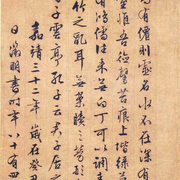 高有僊則名水不在深有
惟吾德馨苔痕上階綠草
有鴻儒往來無白丁可以調素
竹之亂耳無案牘之勞形
子雲亭孔子云
嘉靖三十二年歲在癸
日徵明書時年八十有四